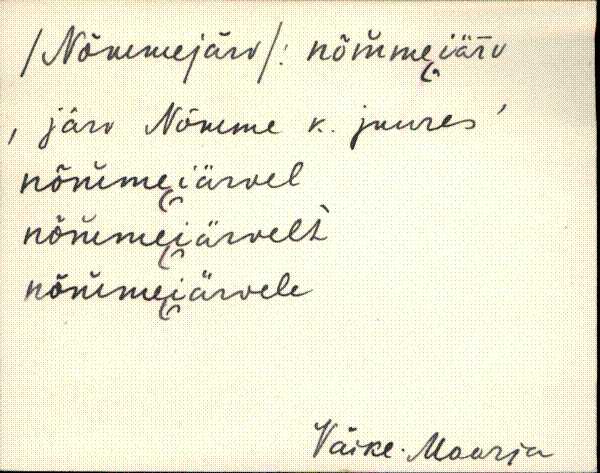 /Nõmmejärv/: nõm̆mei̯är̄v
‚ järv Nõmme k. juures ’
nõm̆mei̯ärvel
nõm̆mei̯ärvelt̀
nõm̆mei̯ärvele
Väike-Maarja